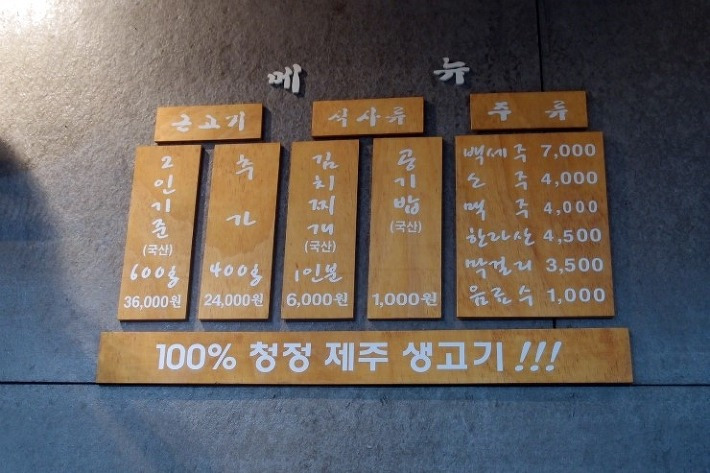 메 뉴
근고기
2인기준
(국산)
600g
36,000원
추가
400g
24,000원
식사류
김치찌개
(국산)
1인분
6,000원
공기밥
(국산)
1,000원
주 류
백세주 7,000
소 주 4,000
맥 주 4,000
한라산 4,500
막걸리 3,500
음료수 1,000
100% 청정 제주 생고기!!!